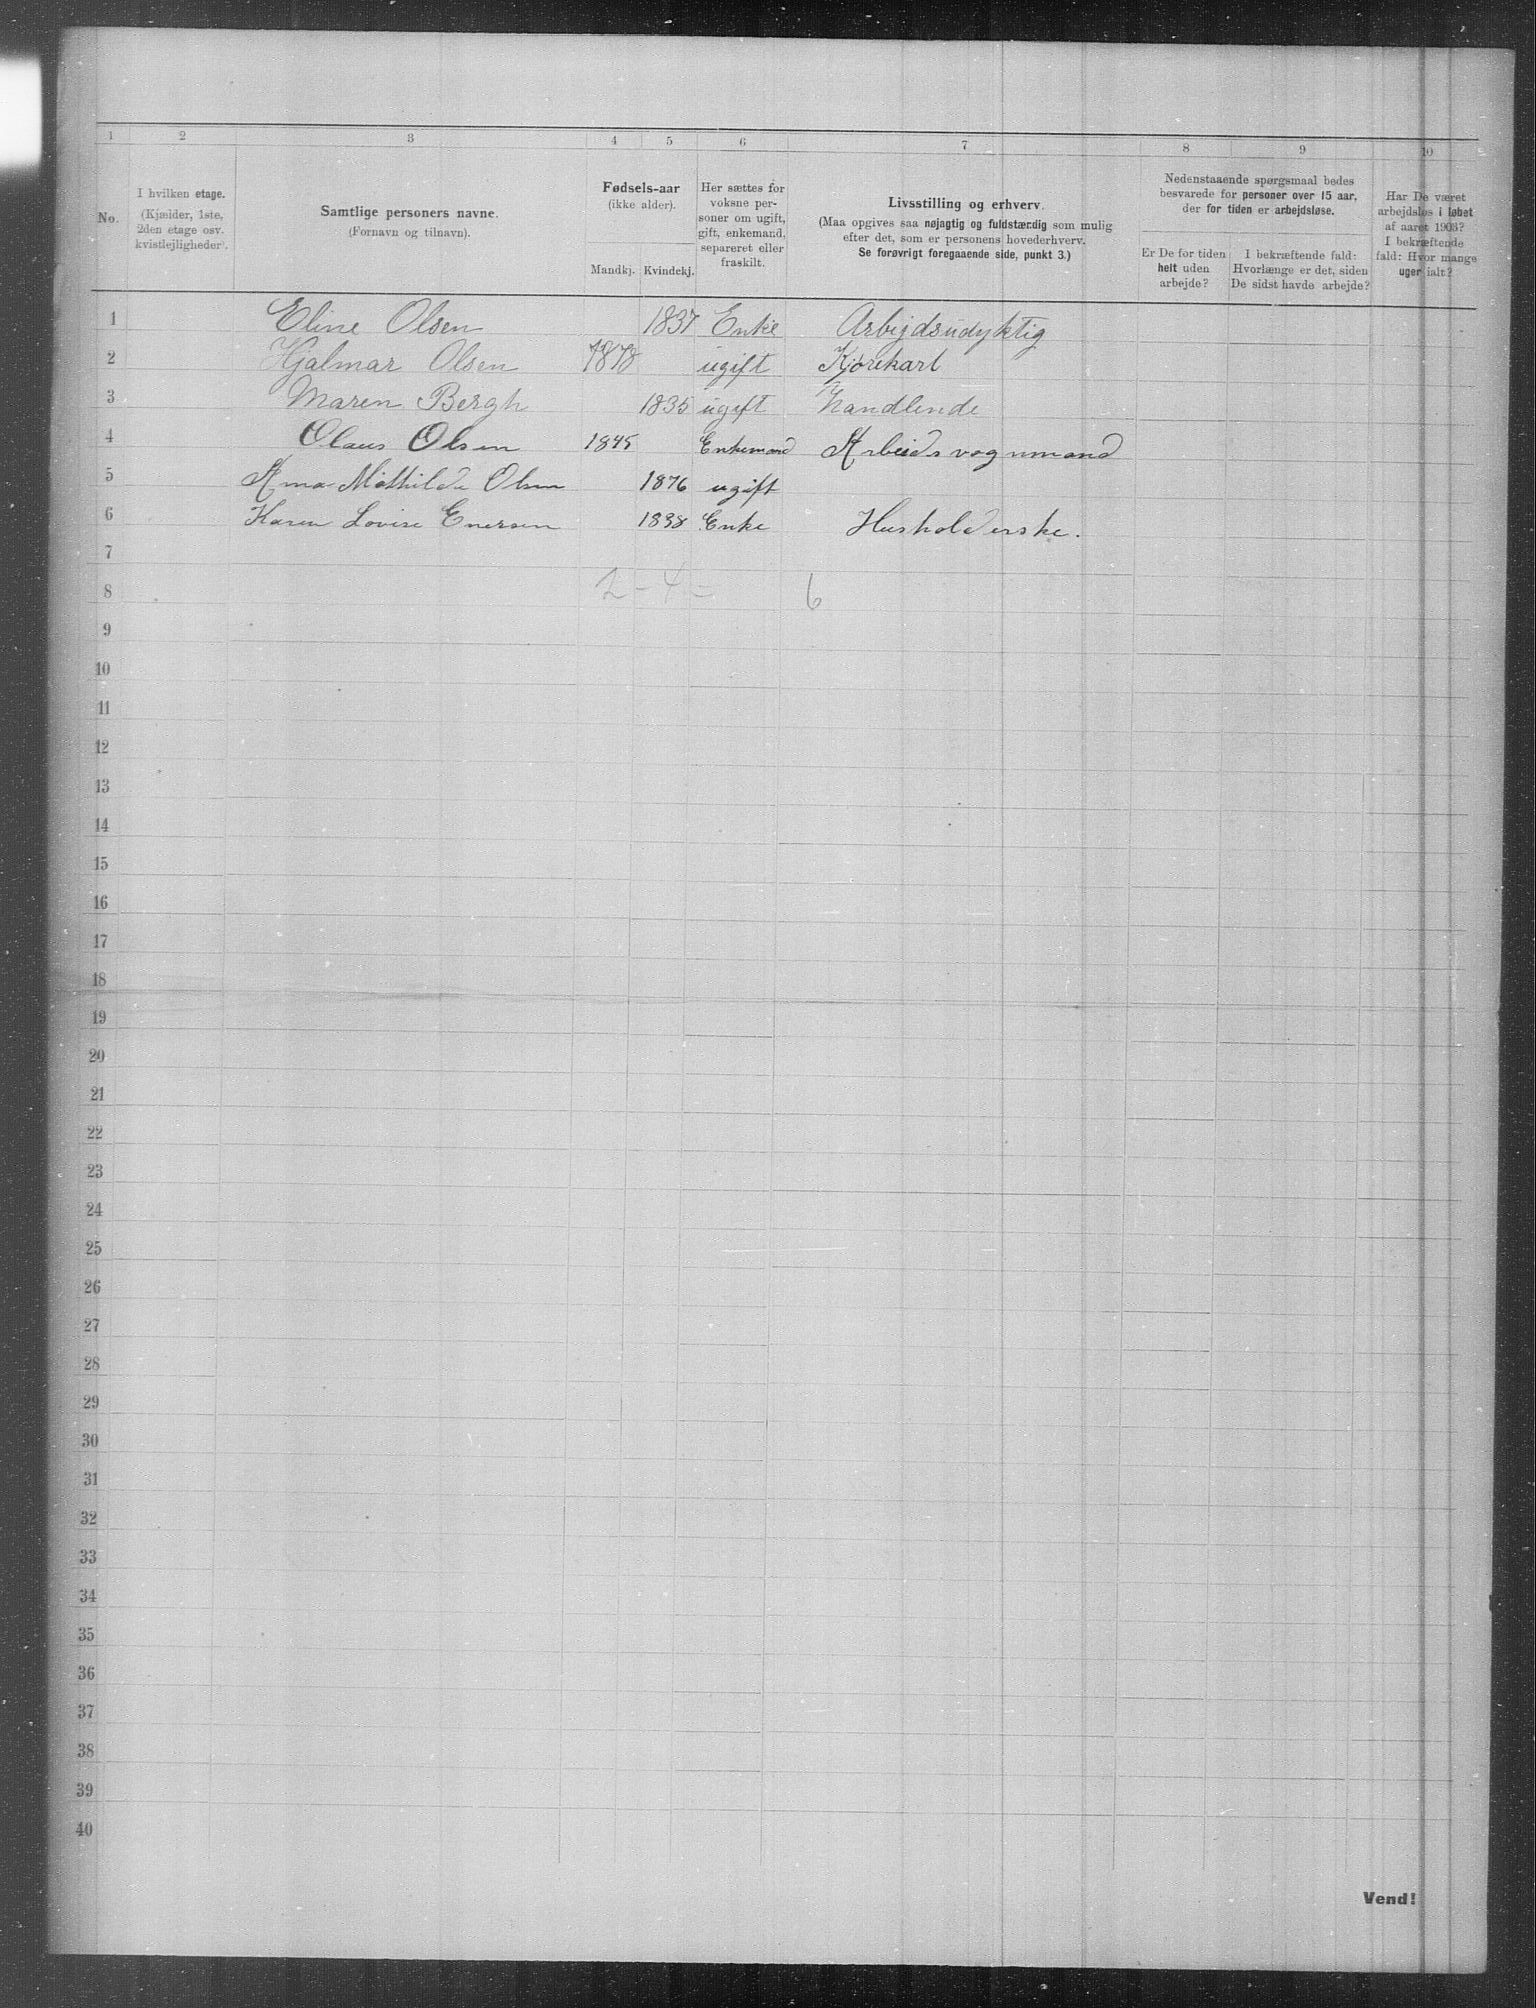 1 2 3 4 5 6 7 8 9 10
No.
I hvilken etage.
(Kjælder, 1ste,
2den etage osv.
kvistlejligheder).
Samtlige personers navne.
(Fornavn og tilnavn).
Fødsels-aar
(ikke alder).
Mandkj. Kvindekj.
Her sættes for
voksne per-
soner om ugift,
gift, enkemand,
separeret eller
fraskilt.
Livsstilling og erhverv.
(Maa opgives saa nøjagtig og fuldstændig som mulig
efter det, som er personens hovederhverv.
Se forøvrigt foregaaende side, punkt 3.)
Nedenstaaende spørgsmaal bedes
besvarede for personer over 15 aar,
der for tiden er arbejdsløse.
Er De for tiden
helt uden
arbejde?
I bekræftende fald:
Hvorlænge er det, siden
De sidst havde arbejde?
Har De været
arbejdsløs i løbet
af aaret 1903?
I bekræftende
fald: Hvor mange
uger ialt?
1 Eline Olsen 1837 Enke Arbejdsudyktig
2 Hjalmar Olsen 1878 ugift Kjørekarl
3 Maren Bergh 1835 ugift Handlende
4 Olaus Olsen 1845 Enkemand Arbeidsvognmand
5 Anna Mathilde Olsen 1876 ugift
6 Karen Lovise Enersen 1838 Enke Husholderske.
7
8 2 - 4 - 6
9
10
11
12
13
14
15
16
17
18
19
20
21
22
23
24
25
26
27
28
29
30
31
32
33
34
35
36
37
38
39
40
Vend!